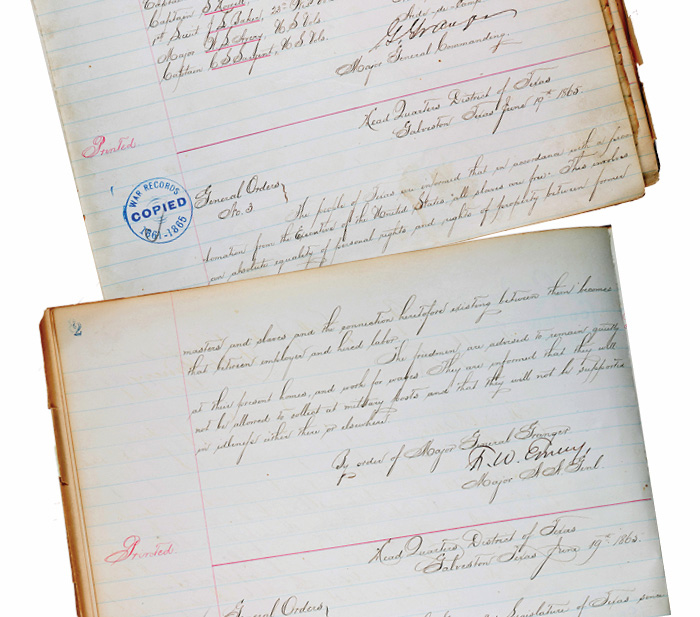 Captain S Howell,
1st Lieut J S Baker, 23d
Major
Captain
Aide de Camp
G Granger
Major General Commanding.
Head Quarters District of Texas
Galveston Texas June 19th 1865.
Printed
WAR RECORDS
COPIED
1861-1865
General Orders
No. 3
The people of Texas are informed that in accordance with a procla-
mation from the Executive of the United States, "all slaves are free." This involves
an absolute equality of personal rights and rights of property between former
2
masters and slaves and the connection heretofore existing between them becomes
that between employer and hired labor.
The freedmen are advised to remain quietly
at their present homes, and work for wages. They are informed that they will
not be allowed to collect at military posts and that they will not be supported
in idleness either there or elsewhere.
By order of Major General Granger
F. W. Emery,
Major A. A. Genl.
Printed
Head Quarters District of Texas
Galveston Texas June 19th 1865.
General Orders
Legislature of Texas since